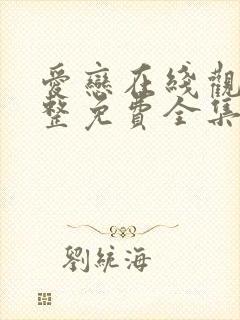 愛戀在綫觀
整免費全集
劉統海